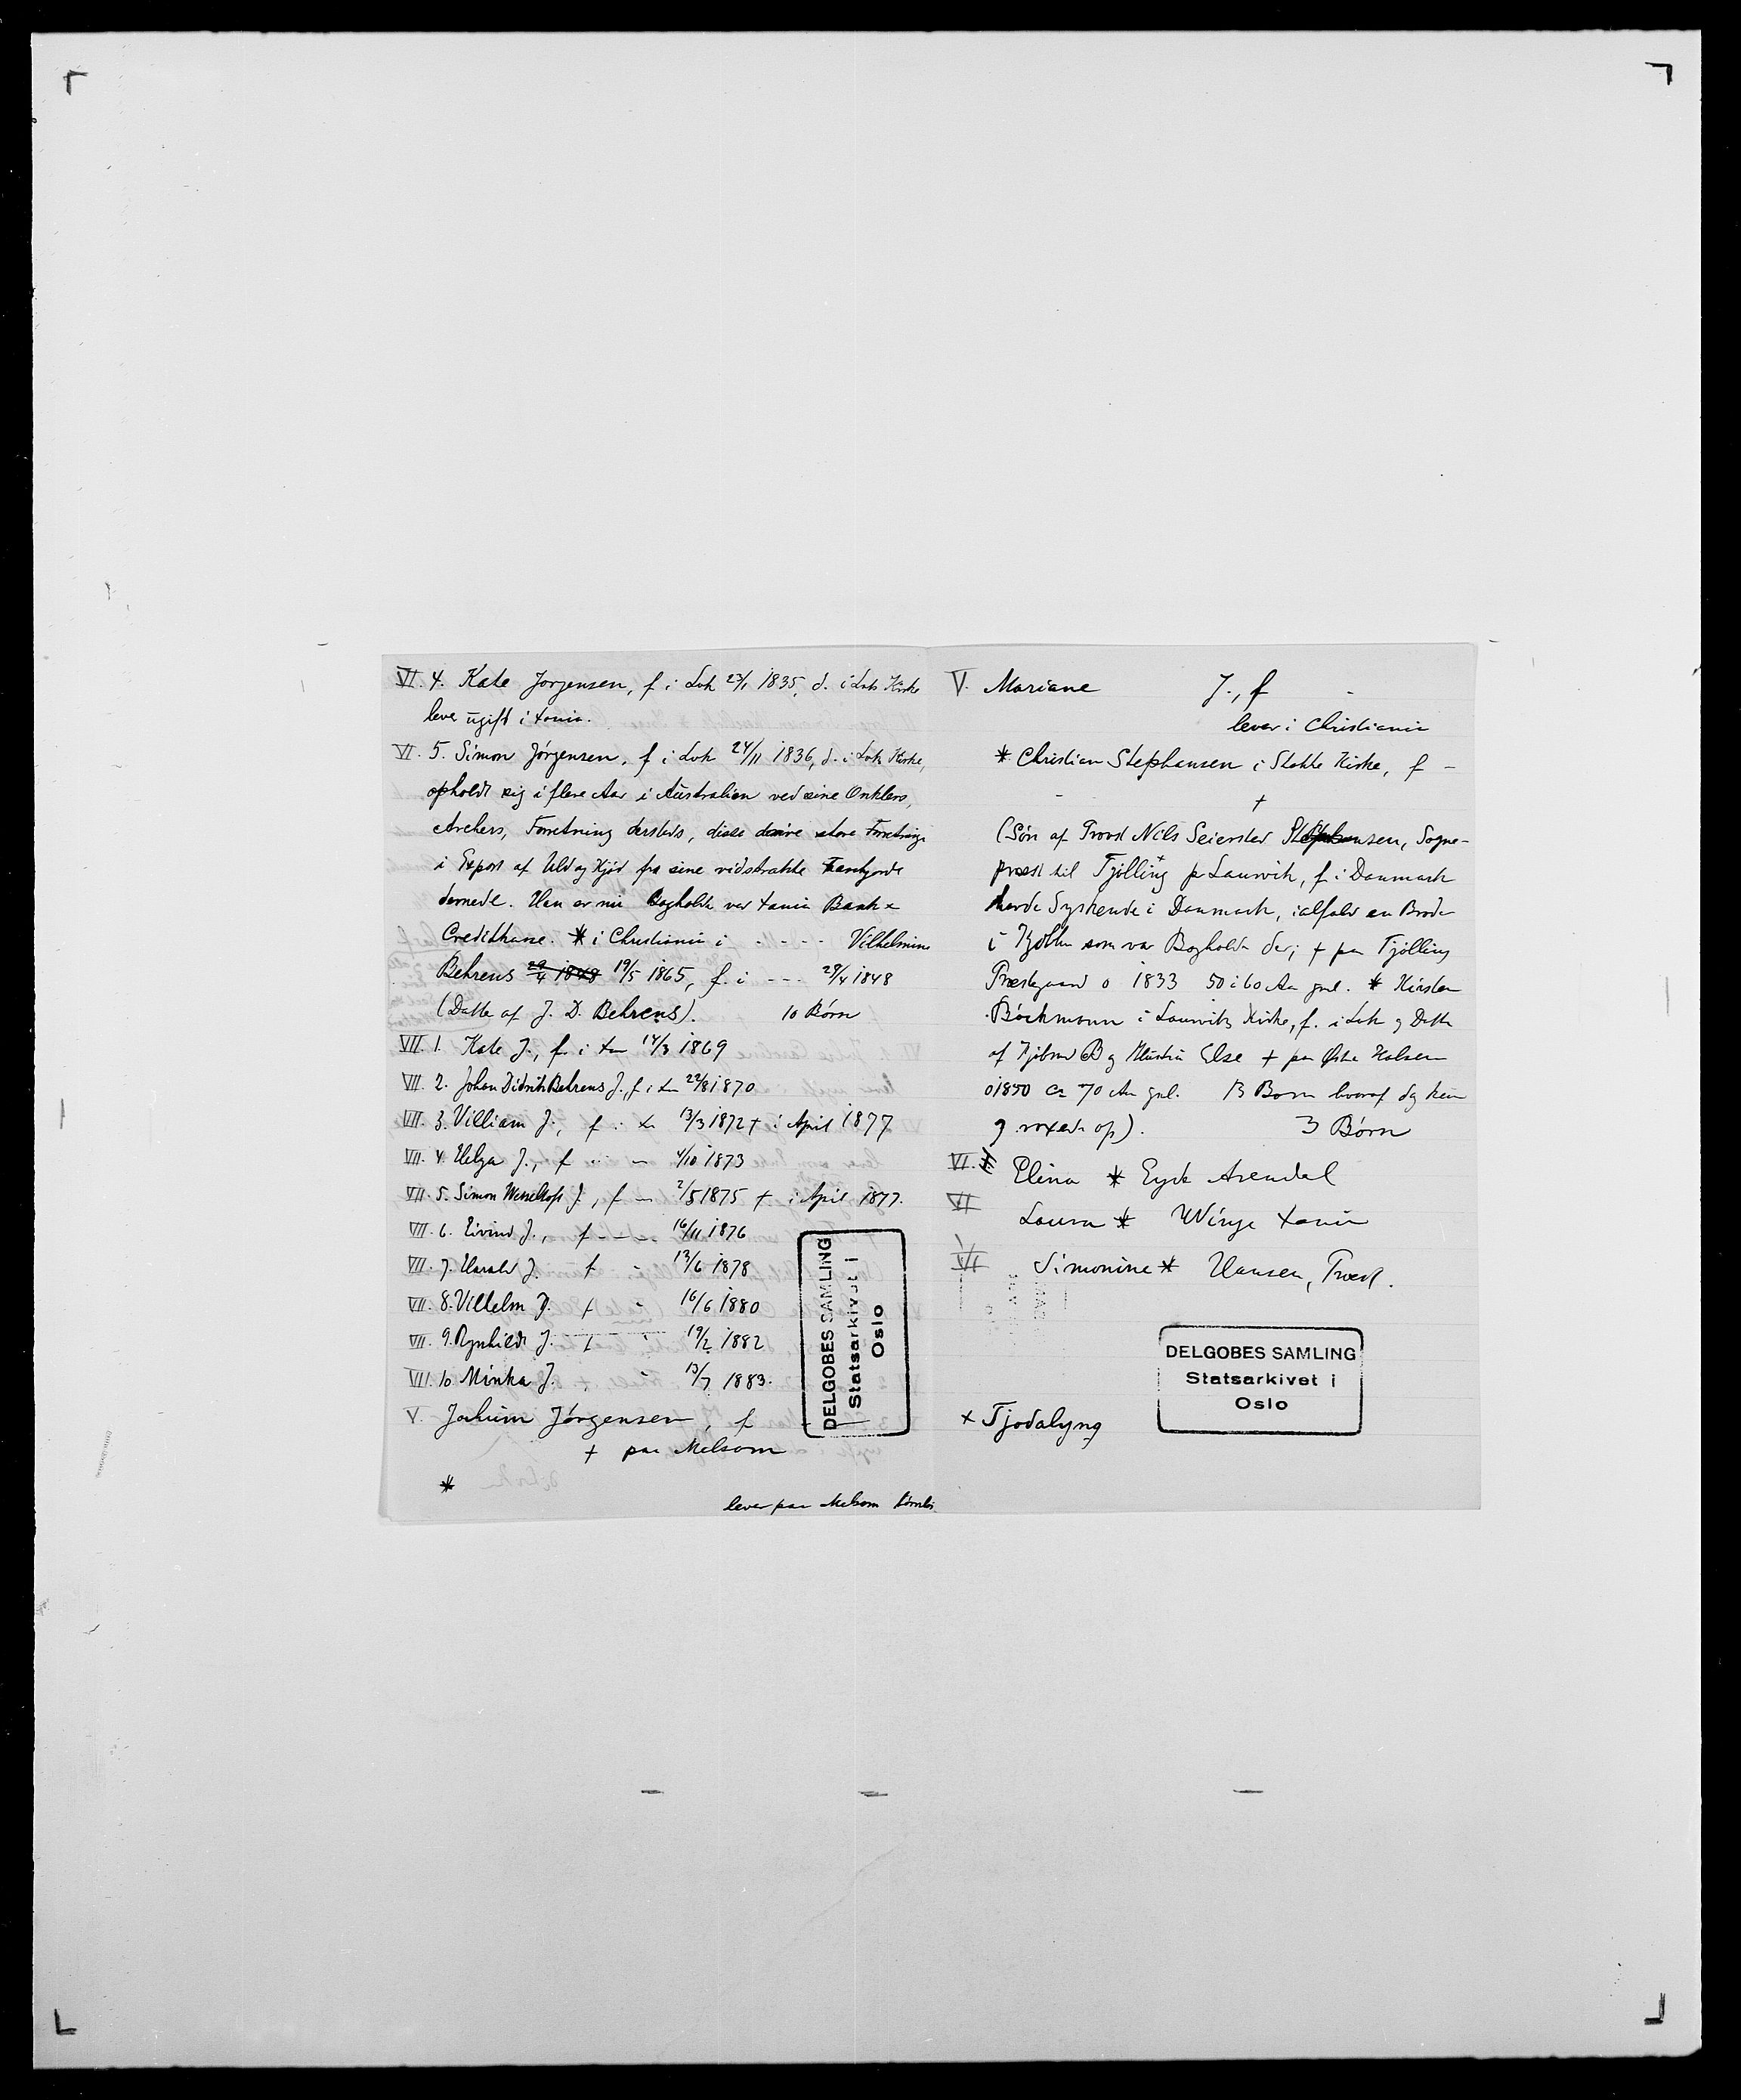 VI. 4. Kate Jørgensen, f i Lvk 23/1 1835, d. i Lvks Kirke
lever ugift i Xania.
VI. 5. Simon Jørgensen, f i Lvk 24/11 1836, d. i Lvk Kirke,
opholdt sig i flere Aar i Australien ved sine Onklers,
Archers, Forretning dersteds, disse drive store Forretninge
i Export af Uld og Kjød fra sine vidstrakte
dernede. Han er nu Bogholder ved Xania Bank &
Creditkasse. * i Christiania i - - - - Vilhelmine
Behrens 29/4 1848 19/5 1865, f. i - - - 29/4 1848
(Datter af J. D. Behrens). 10 Børn
VII. 1. Kate J., f. i Xa 14/3 1869
VII. 2. Johan Didrik Behrens J., f i Xa 22/8 1870
VII. 3. Villiam J., f. i Xa 13/3 1872 + i April 1877
VII. 4. Helga J., f - - - 4/10 1873
VII. 5. Simon Wesselhoft J., f — 2/5 1875 + i April 1877.
VII. 6. Eivind J., f - - - - 16/11 1876
VII. 7. Harald J. f - 13/6 1878
VII. 8. Vilhelm J. f - 16/6 1880
VII. 9. Ragnhild J. f - 19/2 1882
VII. 10 Minka J. 13/7 1883.
V. Jokum Jørgensen, f
+ paa Melsom
*
lever paa Melsom
DELGOBES SAMLING
Statsarkivet i
Oslo
V. Mariane J., f -
lever i Christiania
* Christian Stephansen i Stokke Kirke, f -
- +
(Søn af Provst Nils Seiersted Stephansen, Sogne-
præst til Tjølling x pr Laurvik, f. i Danmark
havde Syskende i Danmark, ialfald en Broder
i Kjøbh som var Bogholder der; + paa Tjølling
Præstegaard o 1833 50 i 60 Aar gml. * Kirsten
Böckmann i Laurviks Kirke, f. i Lvk og Datter
af Kjøbmd B og Hustru Else + paa Østre Halsen
o 1850 ca 70 Aar gml. 13 Børn hvoraf dog kun
9 voxede op). 3 Børn
VI. Elina * Eyde Arendal
VI Laura * Winge Xania
VI Simonine * Hansen, Præst.
DELGOBES SAMLING
Statsarkivet i
Oslo
x Tjodalyng